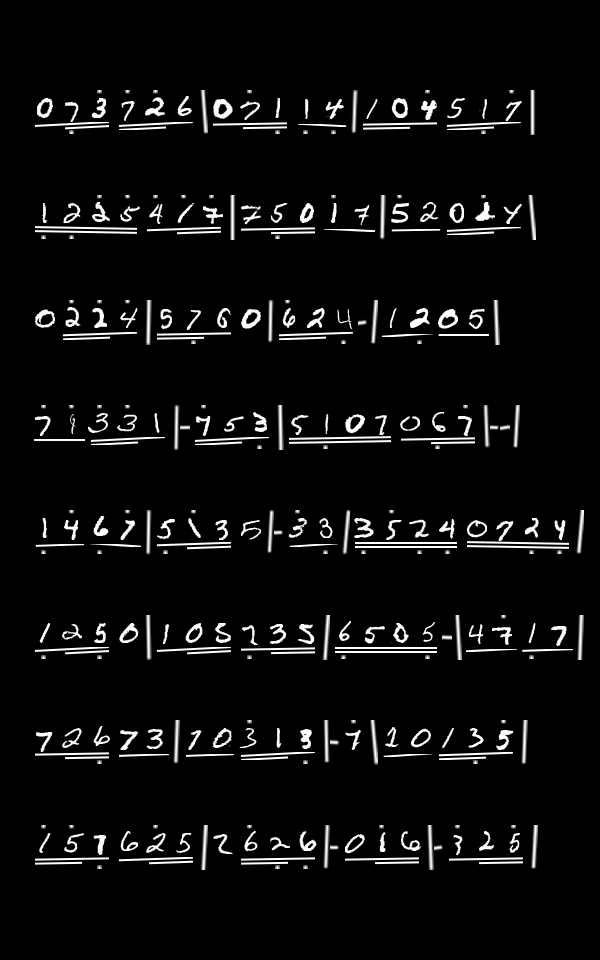 073726|07114|104517
1225417|75017|5201y
0224|5760|624-|1205
71331|-753|5107067|--
1467|5135|-33|35240724
1250|105735|6505-|4717
72673|70313|-7|10135
157625|2626|-016|-325